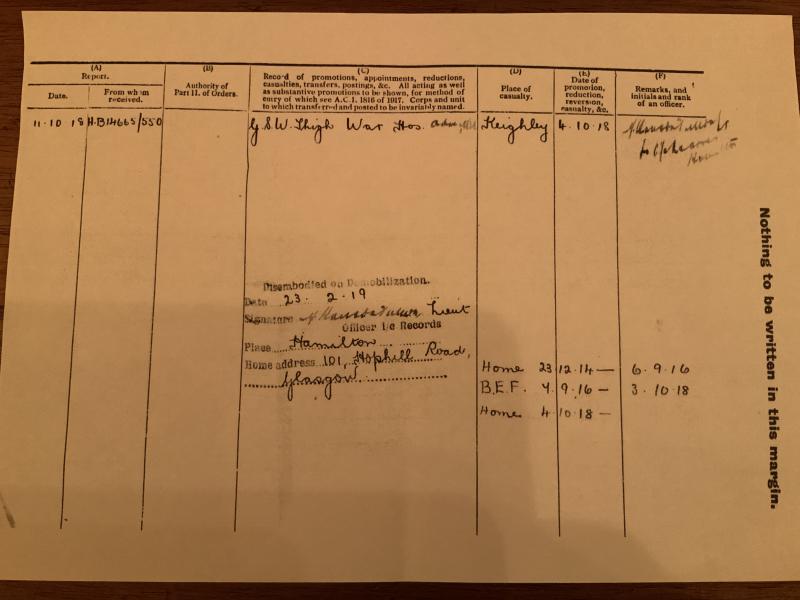 (A)
Report.
Date.
From whom
received.
(B)
Authority of
Part II. of Orders.
(C)
Record of promotions, appointments, reductions,
casualties, transfers, postings, &c. All acting as well
as substantive promotions to be shown, for method of
entry of which see A.C.I. 1816 of 1917. Corps and unit
to which transferred and posted to be invariably named.
(D)
Place of
casualty.
(E)
Date of
promotion,
reduction,
reversion,
casualty, &c.
(F)
Remarks, and
initials and rank
of an officer.
11.10 18 H.B14665/550 G.S.W. Thigh War Hos. Keighley 4.10.18
Disembodied on Demobilization.
Date 23. 2.19
Signature Lieut
Officer I/c Records
Place Hamilton
Home address 101, Hophill Road,
Glasgow
Home 23 12.14 — 6.9.16
B.E.F. 7.9.16 — 3.10.18
Home 4 10.18 —
Nothing to be written in this margin.